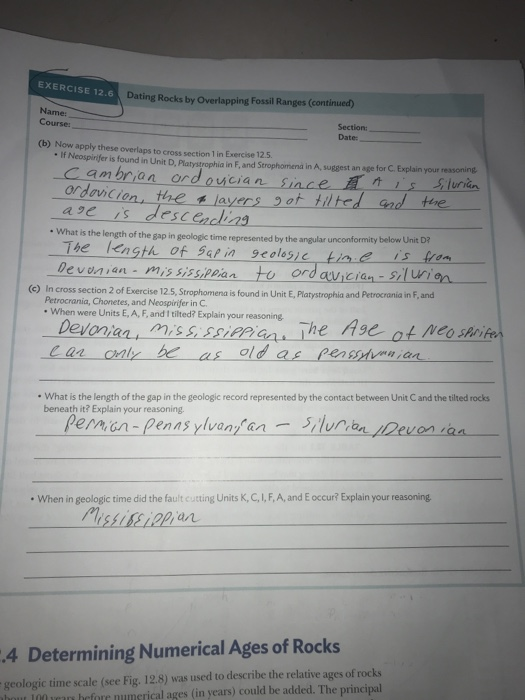 EXERCISE 12.6 Dating Rocks by Overlapping Fossil Ranges (continued)
Name:
Section:
Course:
Date:
(b) Now apply these overlaps to cross section 1 in Exercise 12.5.
• If Neospirifer is found in Unit D, Platystrophia in F, and Strophomena in A, suggest an age for C. Explain your reasoning.
Cambrian ordovician since A is Silurian
ordovicion, the layers got tilted and the
age is descending
• What is the length of the gap in geologic time represented by the angular unconformity below Unit D?
The length of gap in geologic time is from
Devonian - mississippian to ordavician - silurion
(c) In cross section 2 of Exercise 12.5, Strophomena is found in Unit E, Platystrophia and Petrocrania in F, and
Petrocrania, Chonetes, and Neospirifer in C.
• When were Units E, A, F, and I tilted? Explain your reasoning.
Devonian, mississippian. The Age of Neosprifer
can only be as old as penssylvanian
• What is the length of the gap in the geologic record represented by the contact between Unit C and the tilted rocks
beneath it? Explain your reasoning.
Permian - pennsylvanian - silurian / Devonian
• When in geologic time did the fault cutting Units K, C, I, F, A, and E occur? Explain your reasoning.
Mississippian
.4 Determining Numerical Ages of Rocks
geologic time scale (see Fig. 12.8) was used to describe the relative ages of rocks
about 100 years before numerical ages (in years) could be added. The principal